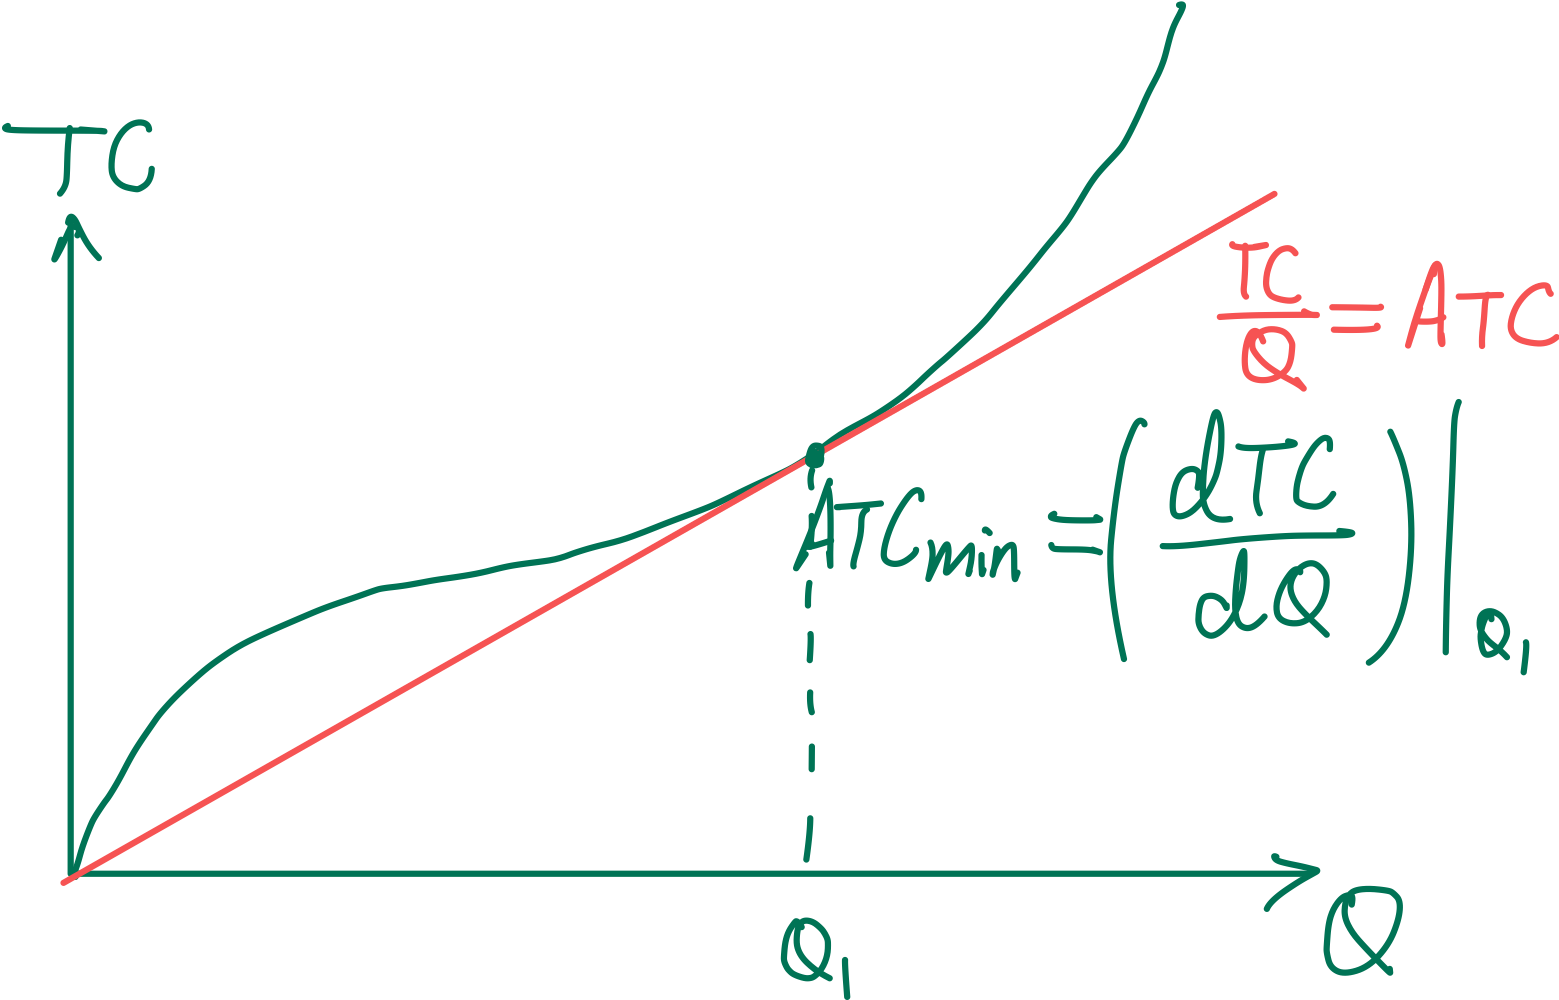 TC
TC/Q = ATC
ATCmin = (dTC/dQ)|Q1
Q1
Q